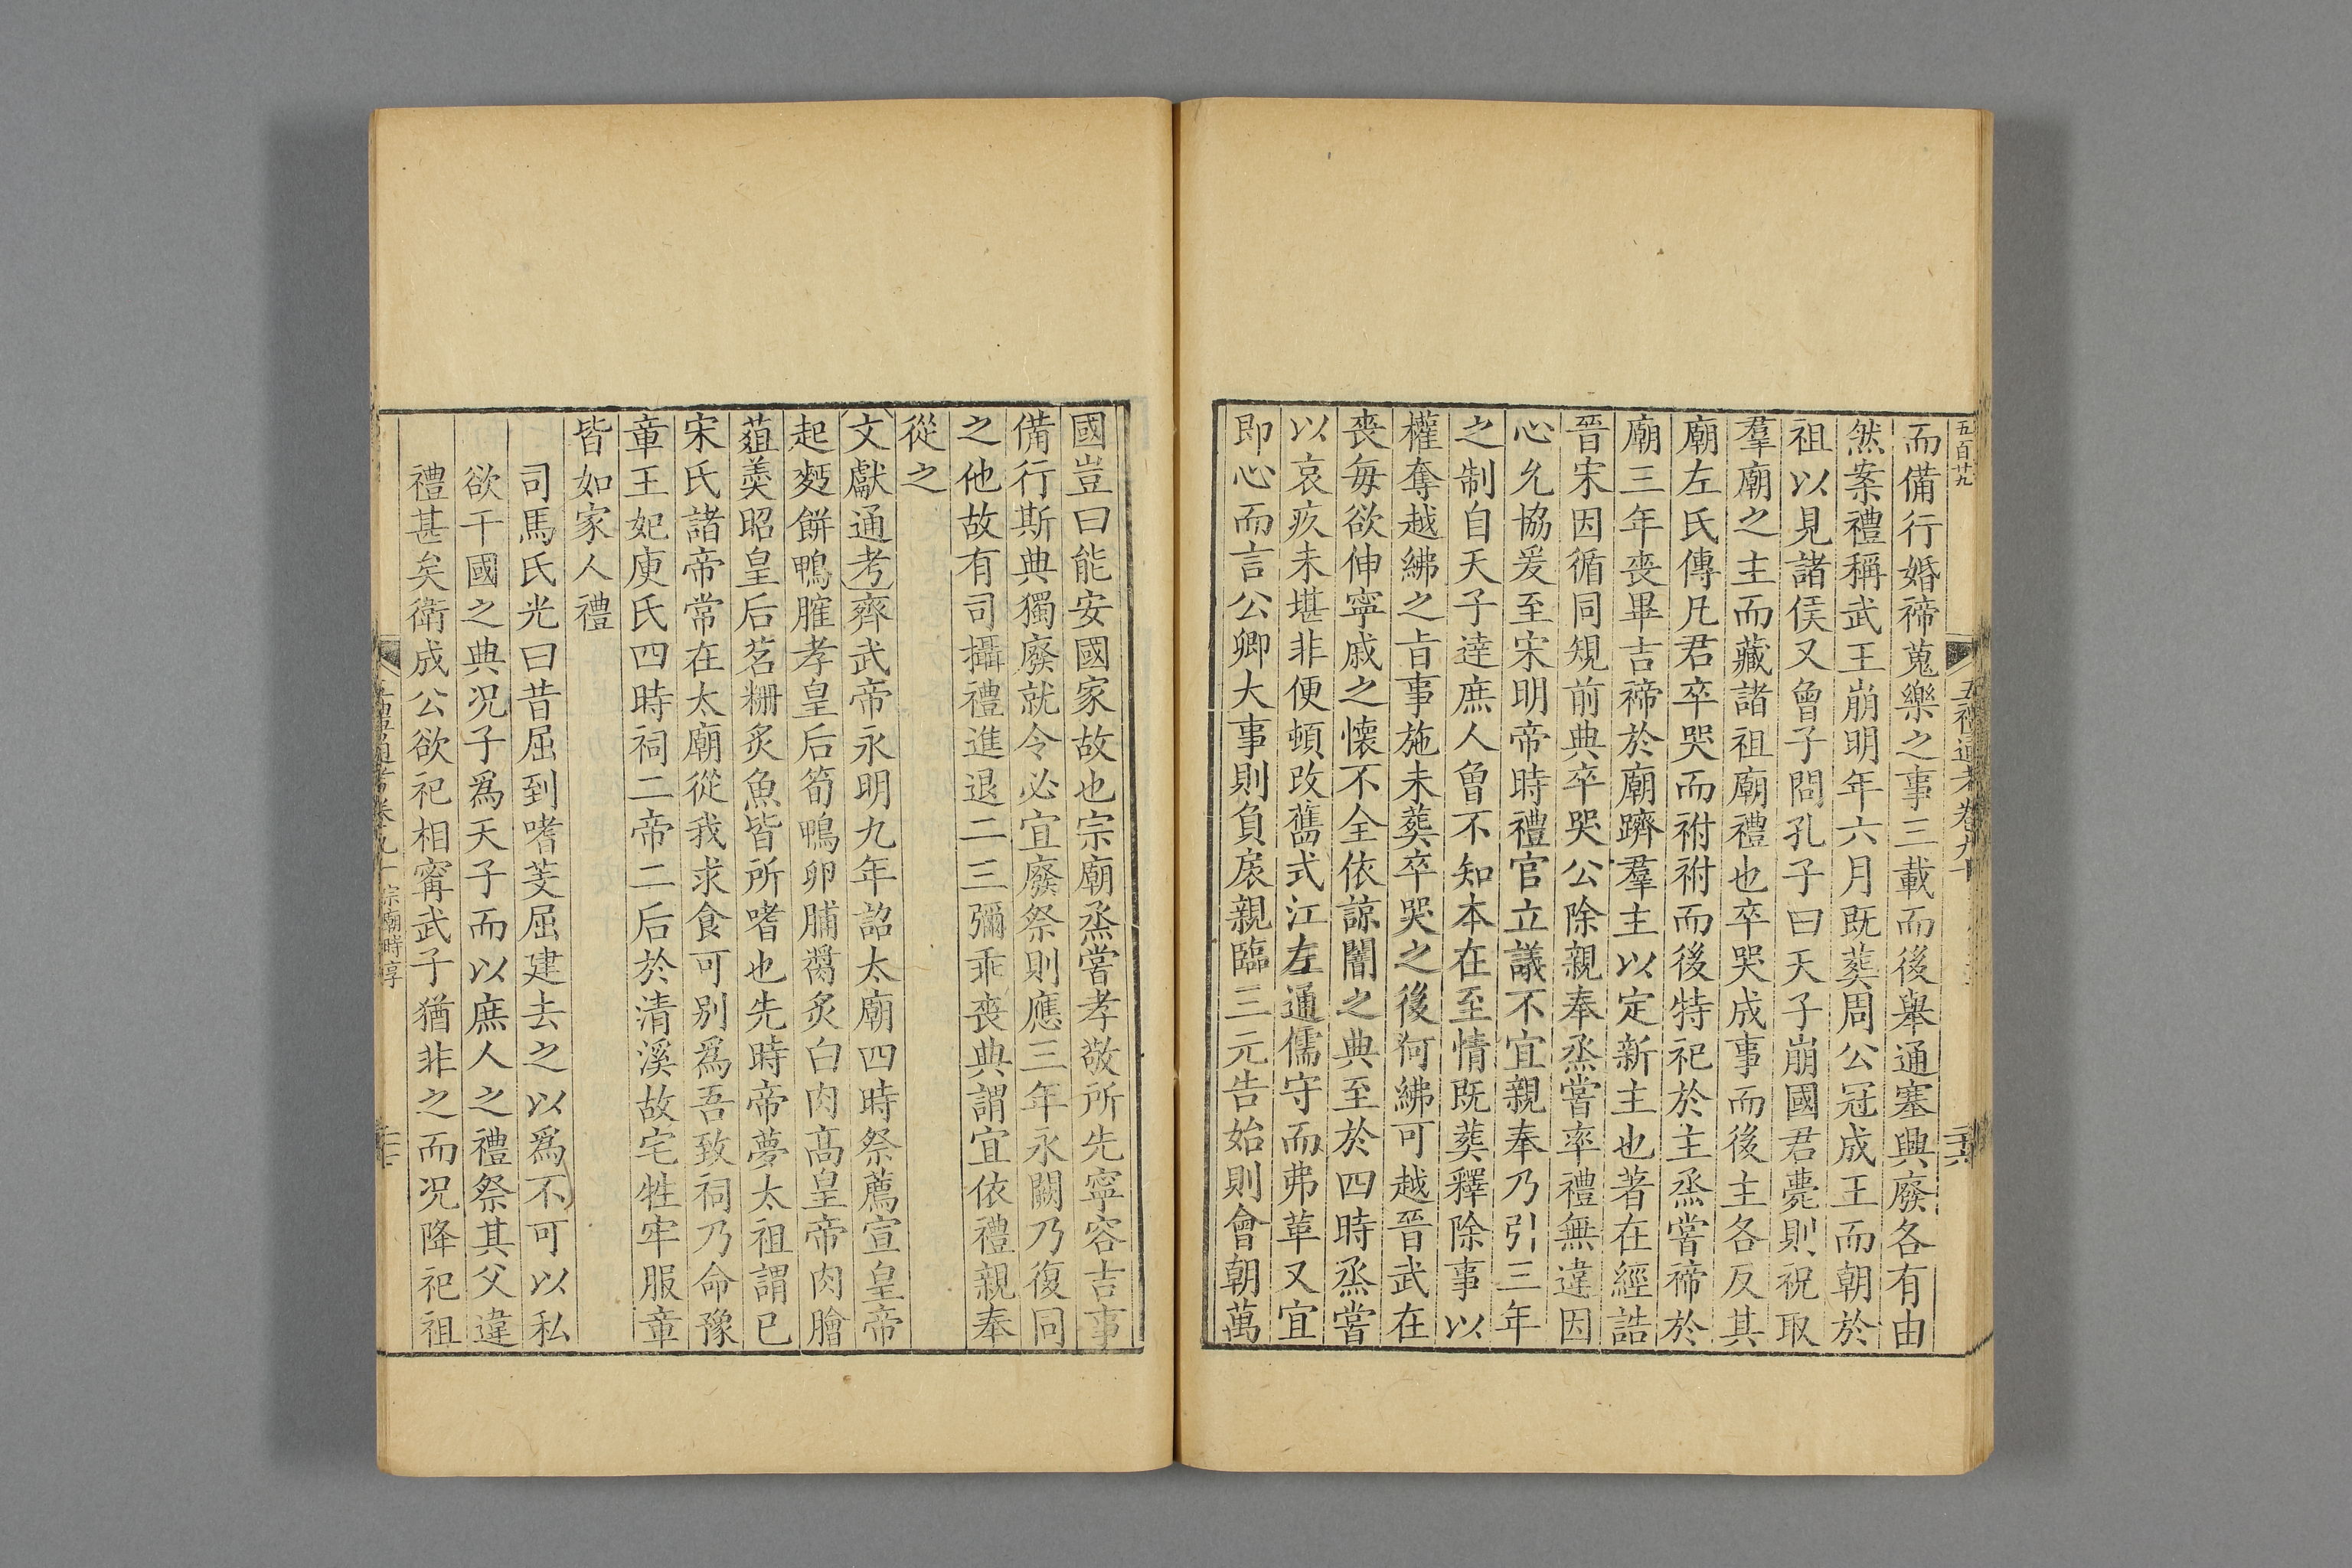 五百廿九
五禮通考卷九十
二六
而備行婚禘蒐樂之事三載而後舉通塞興廢各有由
然案禮稱武王崩明年六月既葬周公冠成王而朝於
祖以見諸侯又曾子問孔子曰天子崩國君薨則祝取
羣廟之主而藏諸祖廟禮也卒哭成事而後主各反其
廟左氏傳凡君卒哭而祔祔而後特祀於主烝嘗禘於
廟三年喪畢吉禘於廟躋羣主以定新主也著在經誥
晉宋因循同規前典卒哭公除親奉烝嘗率禮無違因
心允協爰至宋明帝時禮官立議不宜親奉乃引三年
之制自天子達庶人曾不知本在至情既葬釋除事以
權奪越紼之旨事施未葬卒哭之後何紼可越晉武在
喪每欲伸寧戚之懷不全依諒闇之典至於四時烝嘗
以哀疚未堪非便頓改舊式江左通儒守而弗革又宜
即心而言公卿大事則負扆親臨三元告始則會朝萬
國豈曰能安國家故也宗廟烝嘗孝敬所先寧容吉事
備行斯典獨廢就令必宜廢祭則應三年永闕乃復同
之他故有司攝禮進退二三彌乖喪典謂宜依禮親奉
從之
文獻通考齊武帝永明九年詔太廟四時祭薦宣皇帝
起麪餅鴨臛孝皇后筍鴨卵脯醬炙白肉高皇帝肉膾
葅羹昭皇后茗粣炙魚皆所嗜也先時帝夢太祖謂已
宋氏諸帝常在太廟從我求食可别爲吾致祠乃命豫
章王妃庾氏四時祠二帝二后於清溪故宅牲牢服章
皆如家人禮
司馬氏光曰昔屈到嗜芰屈建去之以爲不可以私
欲干國之典況子爲天子而以庶人之禮祭其父違
禮甚矣衛成公欲祀相甯武子猶非之而況降祀祖
五禮通考卷九十 宗廟時享